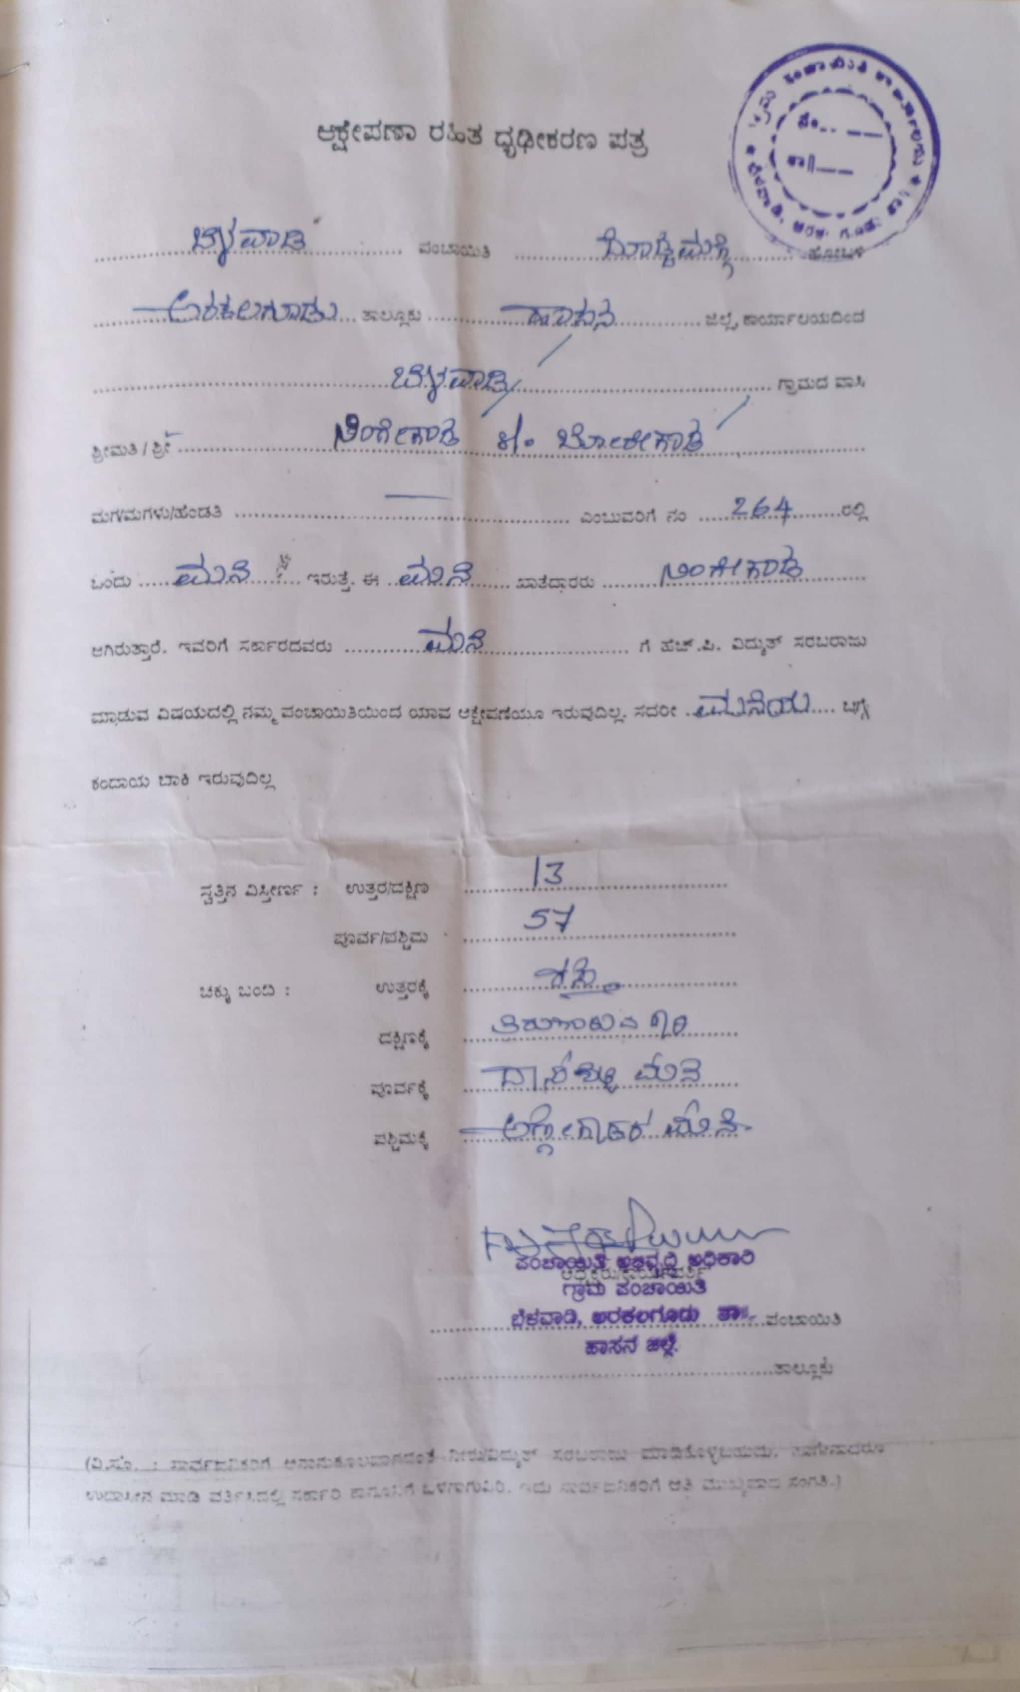 ಗ್ರಾಮ ಪಂಚಾಯಿತಿ ಕಾರ್ಯಾಲಯ
ನಂ.
ತಾ||
ಆಕ್ಷೇಪಣಾ ರಹಿತ ಧೃಢೀಕರಣ ಪತ್ರ
ಬೆಳವಾಡಿ ಪಂಚಾಯಿತಿ ದೊಡ್ಡಮಗ್ಗೆ ಹೋಬಳಿ
ಅರಕಲಗೂಡು ತಾಲ್ಲೂಕು ಹಾಸನ ಜಿಲ್ಲೆ, ಕಾರ್ಯಾಲಯದಿಂದ
ಬೆಳವಾಡಿ ಗ್ರಾಮದ ವಾಸಿ
ಶ್ರೀಮತಿ / ಶ್ರೀ ನಿಂಗೇಗೌಡ s/o ಬೋರೇಗೌಡ
ಮಗ/ಮಗಳು/ಹೆಂಡತಿ ಎಂಬುವರಿಗೆ ನಂ 264 ರಲ್ಲಿ
ಒಂದು ಮನೆ ಇರುತ್ತೆ. ಈ ಮನೆ ಖಾತೆದಾರರು ನಿಂಗೇಗೌಡ
ಆಗಿರುತ್ತಾರೆ. ಇವರಿಗೆ ಸರ್ಕಾರದವರು ಮನೆ ಗೆ ಹೆಚ್.ಪಿ. ವಿದ್ಯುತ್ ಸರಬರಾಜು
ಮಾಡುವ ವಿಷಯದಲ್ಲಿ ನಮ್ಮ ಪಂಚಾಯಿತಿಯಿಂದ ಯಾವ ಆಕ್ಷೇಪಣೆಯೂ ಇರುವುದಿಲ್ಲ. ಸದರೀ ಮನೆಯ ಬಗ್ಗೆ
ಕಂದಾಯ ಬಾಕಿ ಇರುವುದಿಲ್ಲ
ಸ್ವತ್ತಿನ ವಿಸ್ತೀರ್ಣ : ಉತ್ತರ/ದಕ್ಷಿಣ 13
ಪೂರ್ವ/ಪಶ್ಚಿಮ 57
ಚಕ್ಕು ಬಂದಿ : ಉತ್ತರಕ್ಕೆ ರಸ್ತೆ
ದಕ್ಷಿಣಕ್ಕೆ
ಪೂರ್ವಕ್ಕೆ ಮನೆ
ಪಶ್ಚಿಮಕ್ಕೆ ಮನೆ
ಪಂಚಾಯಿತಿ ಅಭಿವೃದ್ಧಿ ಅಧಿಕಾರಿ
ಗ್ರಾಮ ಪಂಚಾಯಿತಿ
ಬೆಳವಾಡಿ, ಅರಕಲಗೂಡು ತಾ|| ಪಂಚಾಯಿತಿ
ಹಾಸನ ಜಿಲ್ಲೆ.
ತಾಲ್ಲೂಕು
(ವಿ.ಸೂ. : ಸಾರ್ವಜನಿಕರಿಗೆ ಅನಾನುಕೂಲವಾಗದಂತೆ ನೀರು/ವಿದ್ಯುತ್ ಸರಬರಾಜು ಮಾಡಿಕೊಳ್ಳಬಹುದು.
ಉದಾಸೀನ ಮಾಡಿ ವರ್ತಿಸಿದಲ್ಲಿ ಸರ್ಕಾರಿ ಕಾನೂನಿಗೆ ಒಳಗಾಗುವಿರಿ. ಇದು ಸಾರ್ವಜನಿಕರಿಗೆ ಅತಿ ಮುಖ್ಯವಾದ ಸಂಗತಿ.)